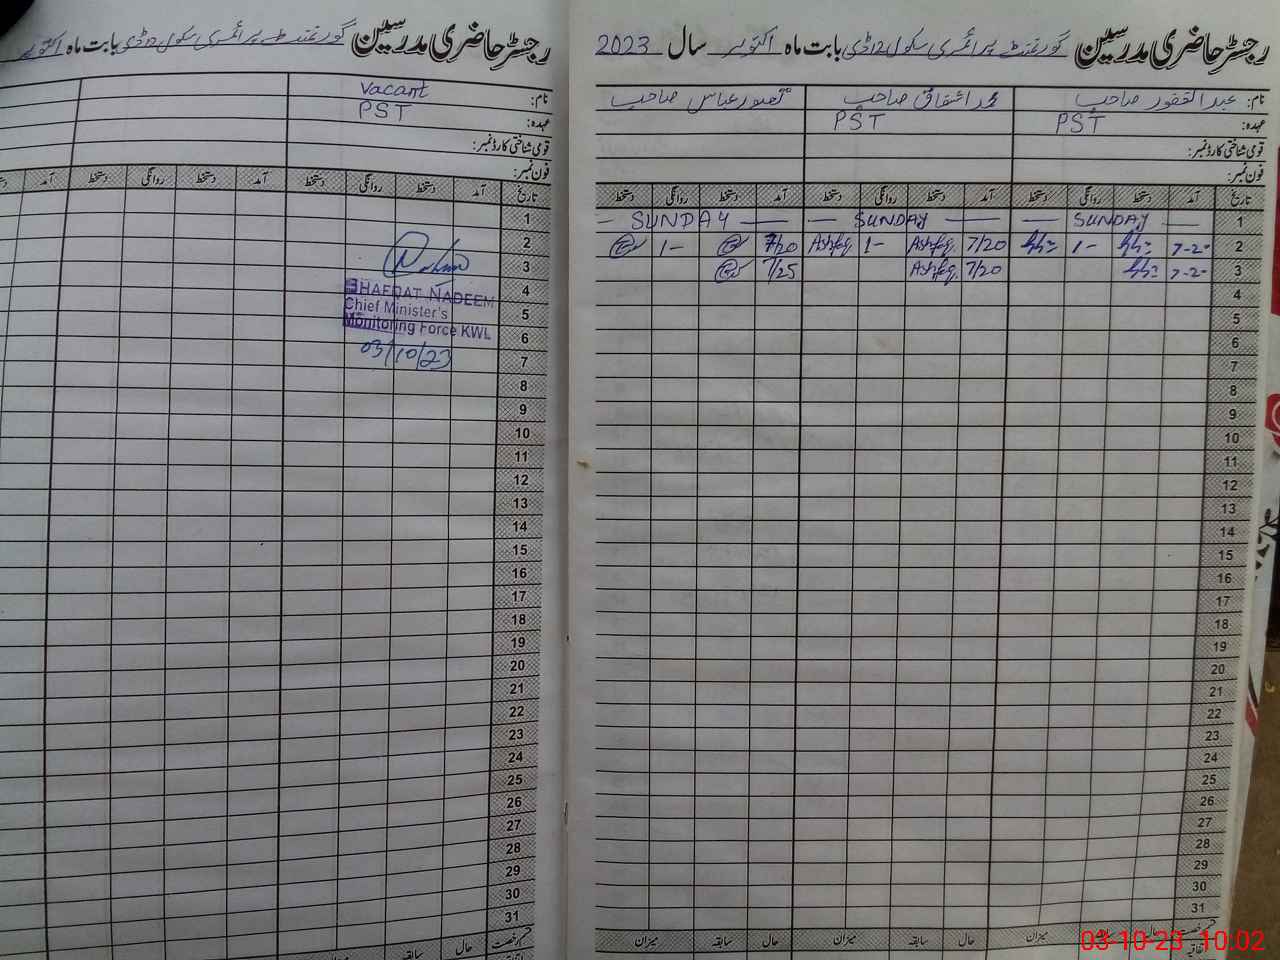 رجسٹر حاضری مدرسین گورنمنٹ پرائمری سکول 12 ڈی بابت ماہ اکتوبر سال 2023
نام: عبدالغفور صاحب محمد اشفاق صاحب تصور عباس صاحب
عہدہ: PST PST
قومی شناختی کارڈ نمبر:
فون نمبر:
تاریخ آمد دستخط روانگی دستخط آمد دستخط روانگی دستخط آمد دستخط روانگی دستخط
1 — SUNDAY — — SUNDAY — — SUNDAY —
2 7-20 1- 7/20 Ashfaq 1- Ashfaq 7/20 1-
3 7-20 7/20 Ashfaq 7/25
4
5
6
7
8
9
10
11
12
13
14
15
16
17
18
19
20
21
22
23
24
25
26
27
28
29
30
31
حال سابقہ میزان حال سابقہ میزان حال سابقہ میزان
رجسٹر حاضری مدرسین گورنمنٹ پرائمری سکول 12 ڈی بابت ماہ اکتوبر
نام: Vacant
عہدہ: PST
قومی شناختی کارڈ نمبر:
فون نمبر:
تاریخ آمد دستخط روانگی دستخط آمد دستخط روانگی دستخط آمد
1
2
3
4
5
6
7
8
9
10
11
12
13
14
15
16
17
18
19
20
21
22
23
24
25
26
27
28
29
30
31
SHAFQAT NADEEM
Chief Minister's
Monitoring Force KWL
03/10/23
حال سابقہ میزان
03-10-23 10:02